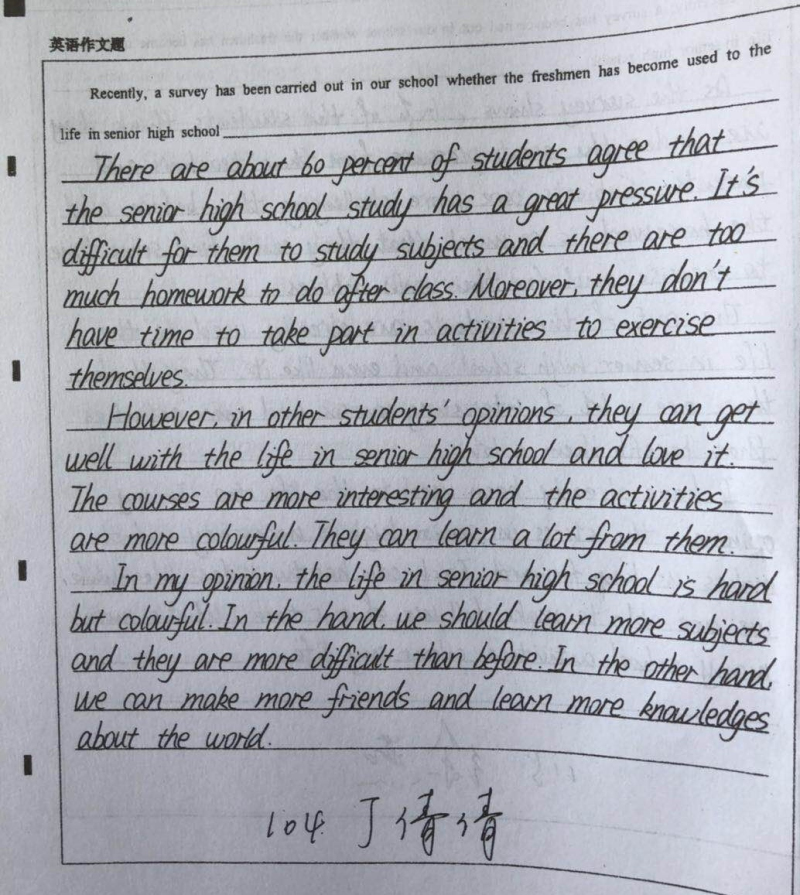 英语作文题
Recently, a survey has been carried out in our school whether the freshmen has become used to the
life in senior high school
There are about 60 percent of students agree that
the senior high school study has a great pressure. It's
difficult for them to study subjects and there are too
much homework to do after class. Moreover, they don't
have time to take part in activities to exercise
themselves.
However, in other students' opinions, they can get
well with the life in senior high school and love it.
The courses are more interesting and the activities
are more colourful. They can learn a lot from them.
In my opinion, the life in senior high school is hard
but colourful. In the hand, we should learn more subjects
and they are more difficult than before. In the other hand,
we can make more friends and learn more knowledges
about the world.
104 丁倩倩